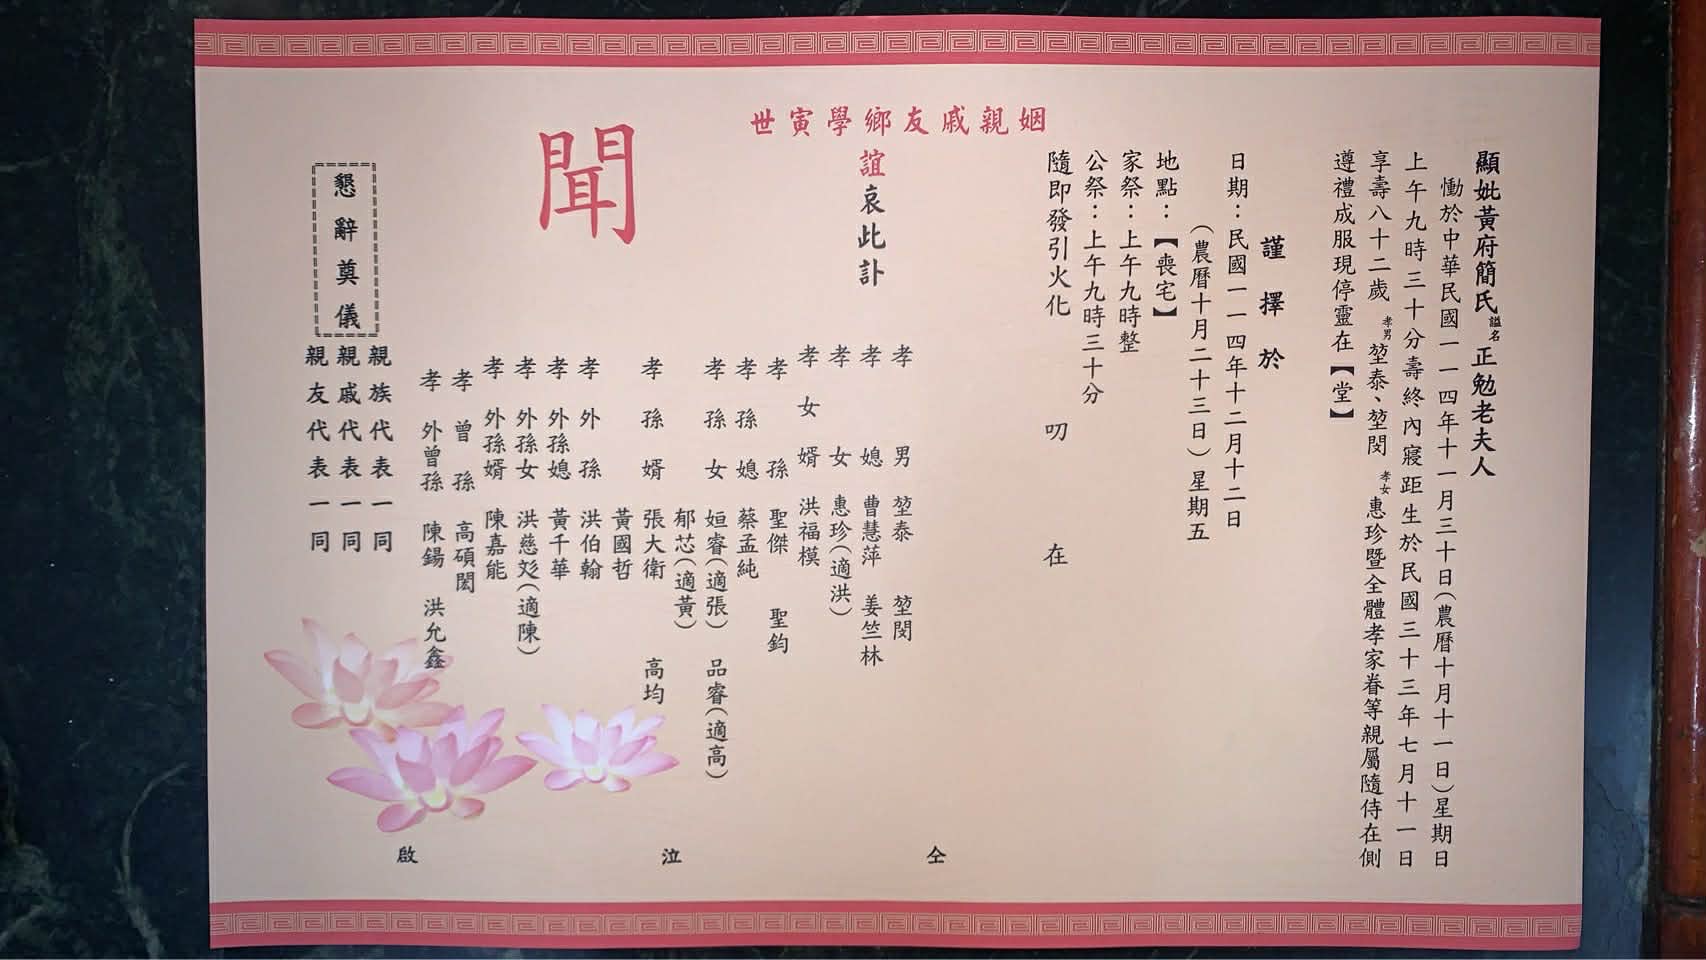 顯妣黃府簡氏謚名正勉老夫人
慟於中華民國一一四年十一月三十日(農曆十月十一日)星期日
上午九時三十分壽終內寢距生於民國三十三年七月十一日
享壽八十二歲 孝男堃泰、堃閔 孝女惠珍暨全體孝家眷等親屬隨侍在側
遵禮成服現停靈在【堂】
謹擇於
日期：民國一一四年十二月十二日
(農曆十月二十三日)星期五
地點：【喪宅】
家祭：上午九時整
公祭：上午九時三十分
隨即發引火化 叨在
姻親戚友鄉學寅世
誼哀此訃
聞
孝男 堃泰 堃閔
孝媳 曹慧萍 姜竺林
孝女 惠珍(適洪)
孝女婿 洪福模
孝孫 聖傑 聖鈞
孝孫媳 蔡孟純
孝孫女 姮睿(適張) 品睿(適高)
郁芯(適黃)
孝孫婿 張大衛 高均
黃國哲
孝外孫 洪伯翰
孝外孫媳 黃千華
孝外孫女 洪慈彣(適陳)
孝外孫婿 陳嘉能
孝曾孫 高碩閎
孝外曾孫 陳鍚 洪允鑫
親族代表一同
親戚代表一同
親友代表一同
仝泣啟
懇辭奠儀